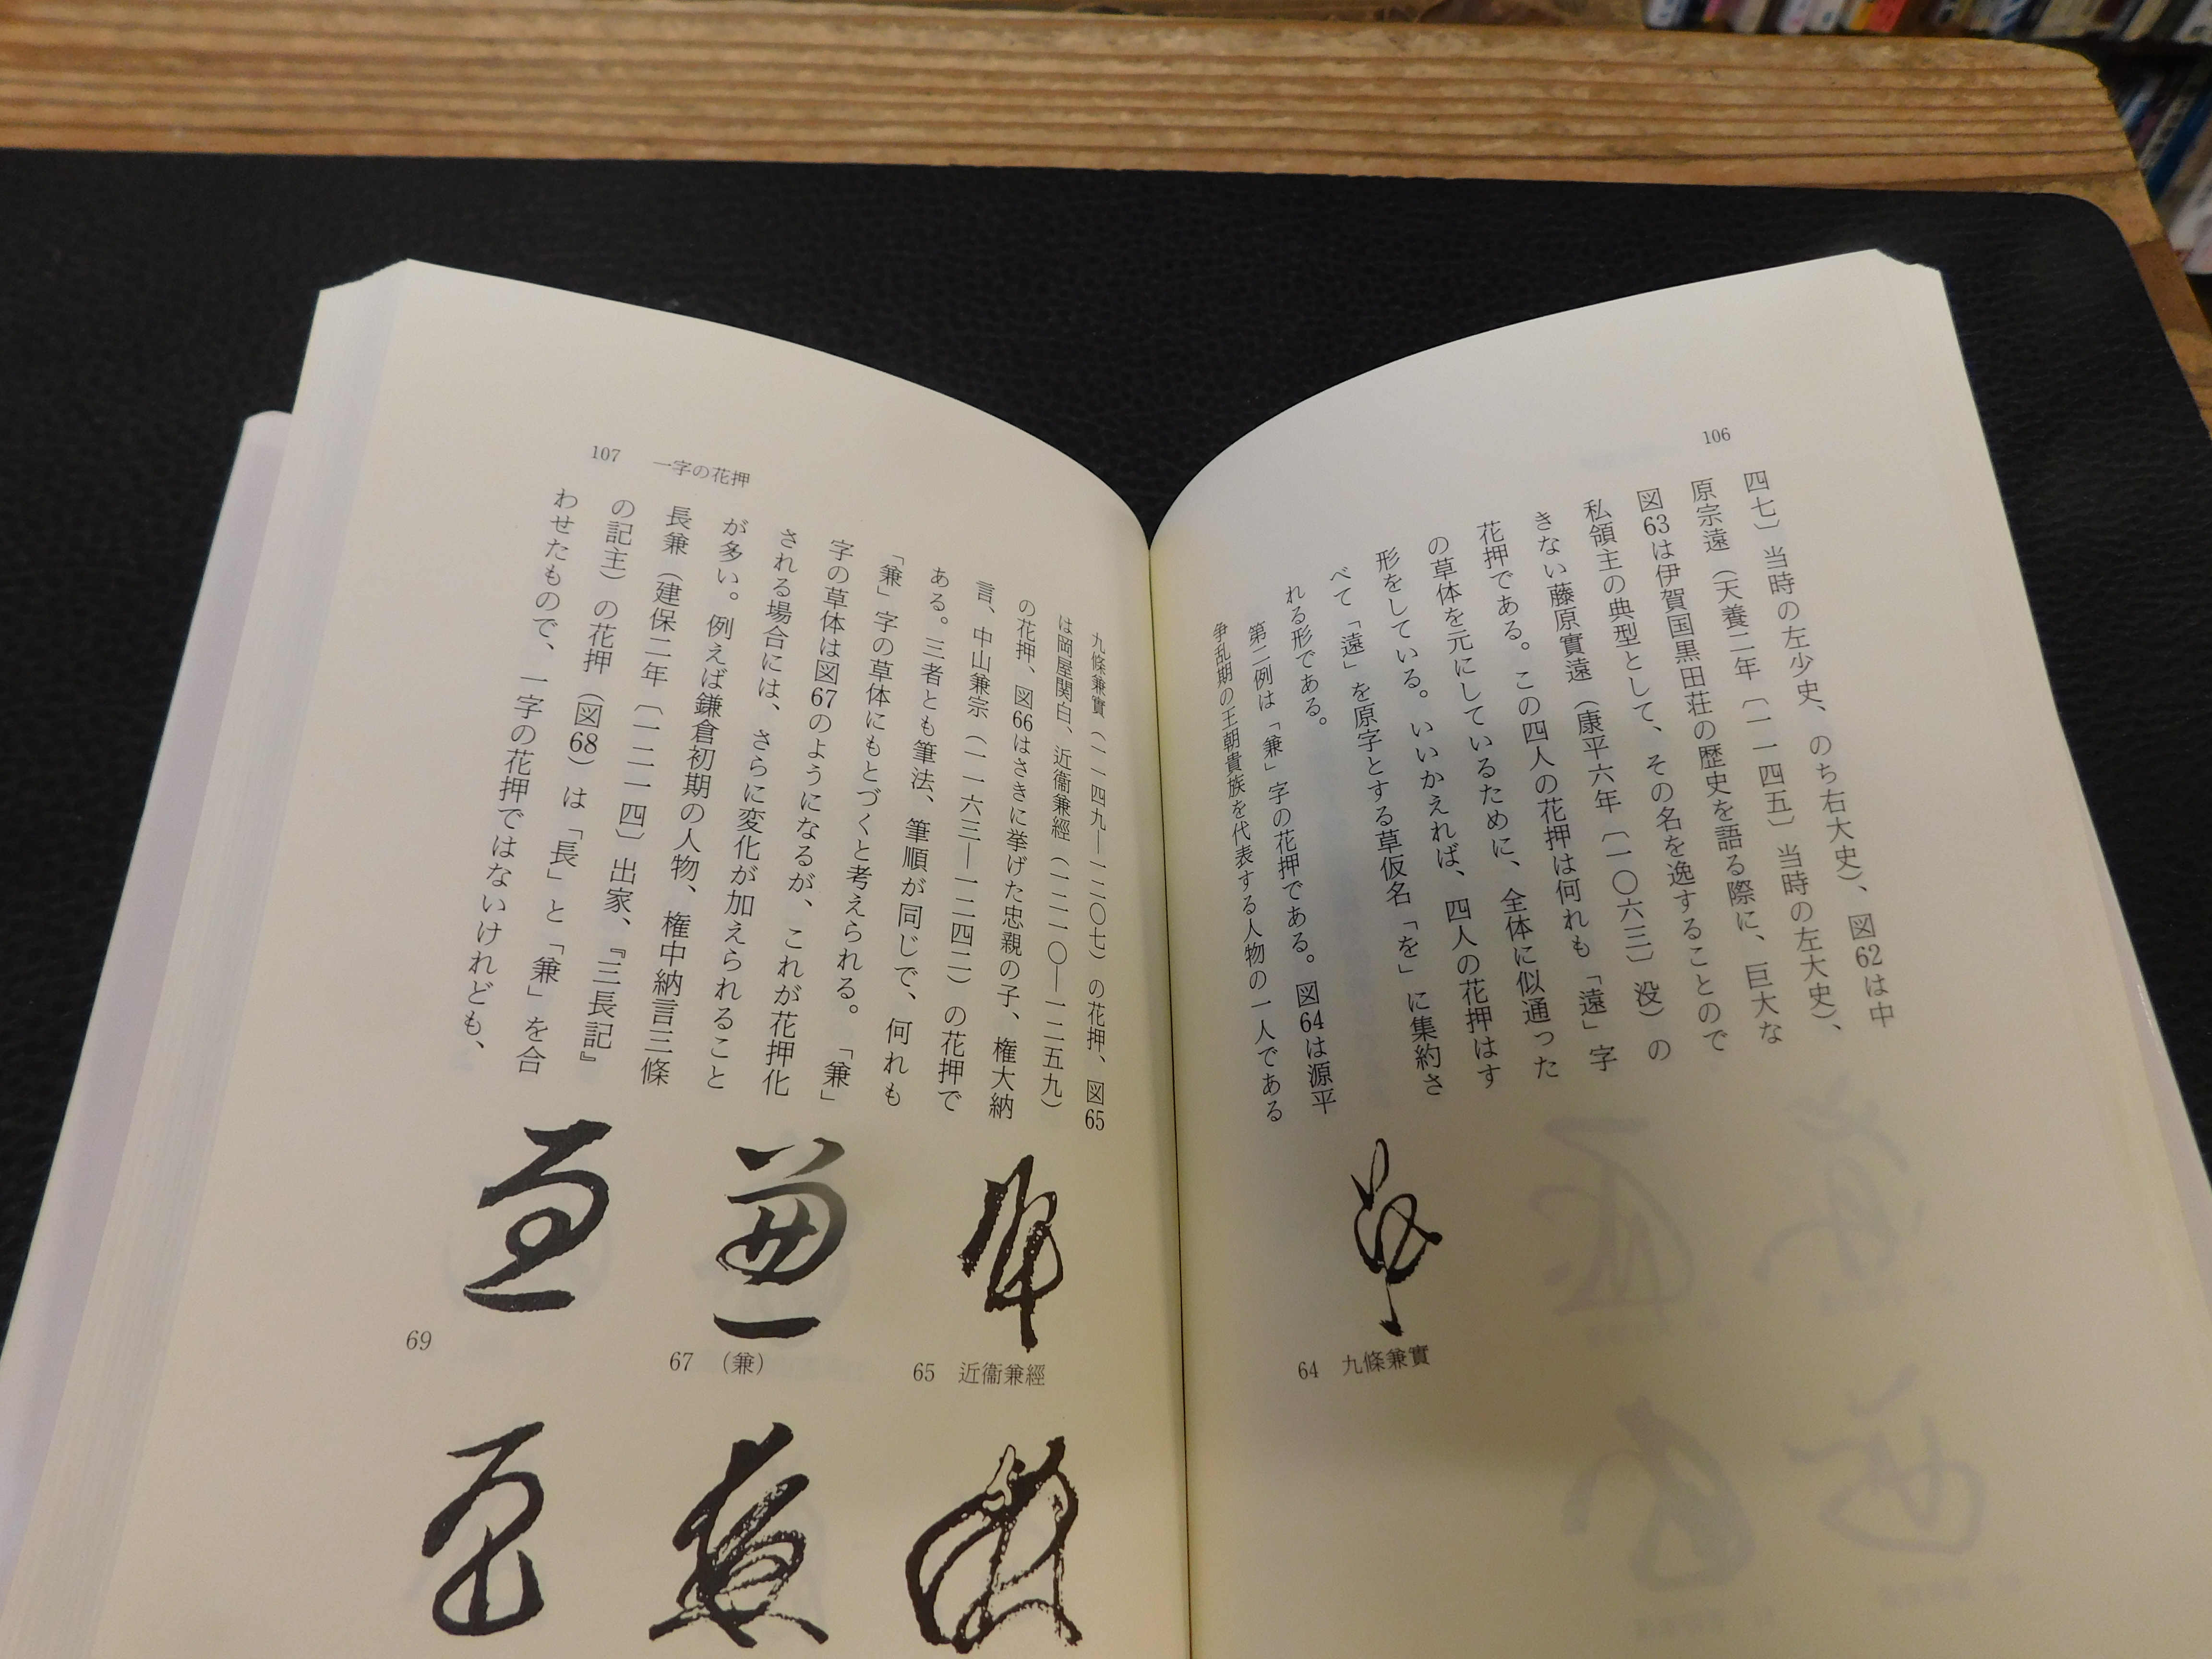 106
四七〕当時の左少史、のち右大史)、図62は中
原宗遠(天養二年〔一一四五〕当時の左大史)、
図63は伊賀国黒田荘の歴史を語る際に、巨大な
私領主の典型として、その名を逸することので
きない藤原實遠(康平六年〔一〇六三〕没)の
花押である。この四人の花押は何れも「遠」字
の草体を元にしているために、全体に似通った
形をしている。いいかえれば、四人の花押はす
べて「遠」を原字とする草仮名「を」に集約さ
れる形である。
第二例は「兼」字の花押である。図64は源平
争乱期の王朝貴族を代表する人物の一人である
64 九條兼實
107 一字の花押
九條兼實(一一四九―一二〇七)の花押、図65
は岡屋関白、近衞兼經(一二一〇―一二五九)
の花押、図66はさきに挙げた忠親の子、権大納
言、中山兼宗(一一六三―一二四二)の花押で
ある。三者とも筆法、筆順が同じで、何れも
「兼」字の草体にもとづくと考えられる。「兼」
字の草体は図67のようになるが、これが花押化
される場合には、さらに変化が加えられること
が多い。例えば鎌倉初期の人物、権中納言三條
長兼(建保二年〔一二一四〕出家、『三長記』
の記主)の花押(図68)は「長」と「兼」を合
わせたもので、一字の花押ではないけれども、
65 近衞兼經
67 (兼)
69